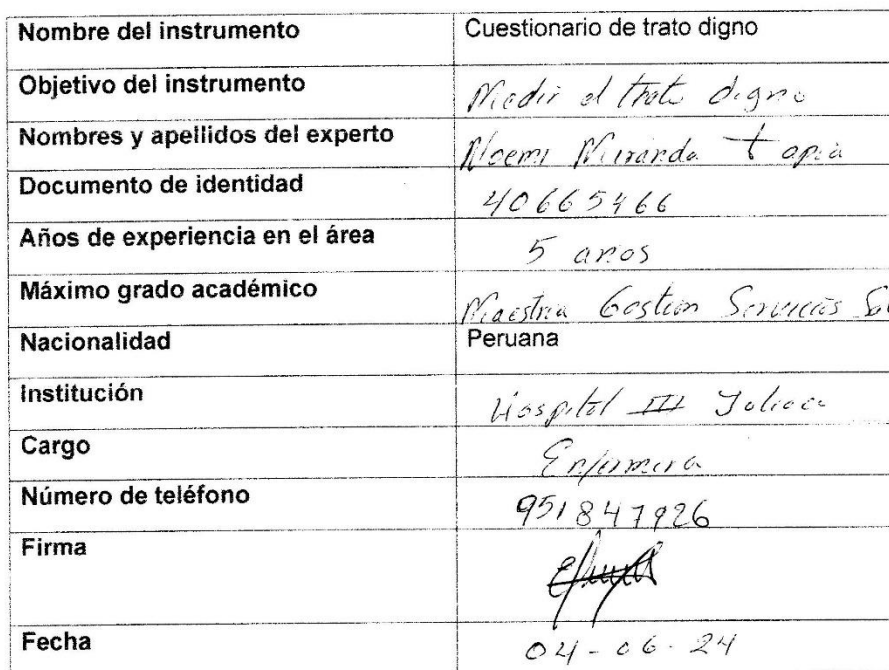 Nombre del instrumento Cuestionario de trato digno
Objetivo del instrumento Medir el trato digno
Nombres y apellidos del experto Noemi Miranda Tapia
Documento de identidad 40665466
Años de experiencia en el área 5 años
Máximo grado académico Maestria Gestion Servicios
Nacionalidad Peruana
Institución Hospital III Juliaca
Cargo Enfermera
Número de teléfono 951847926
Firma
Fecha 04-06-24